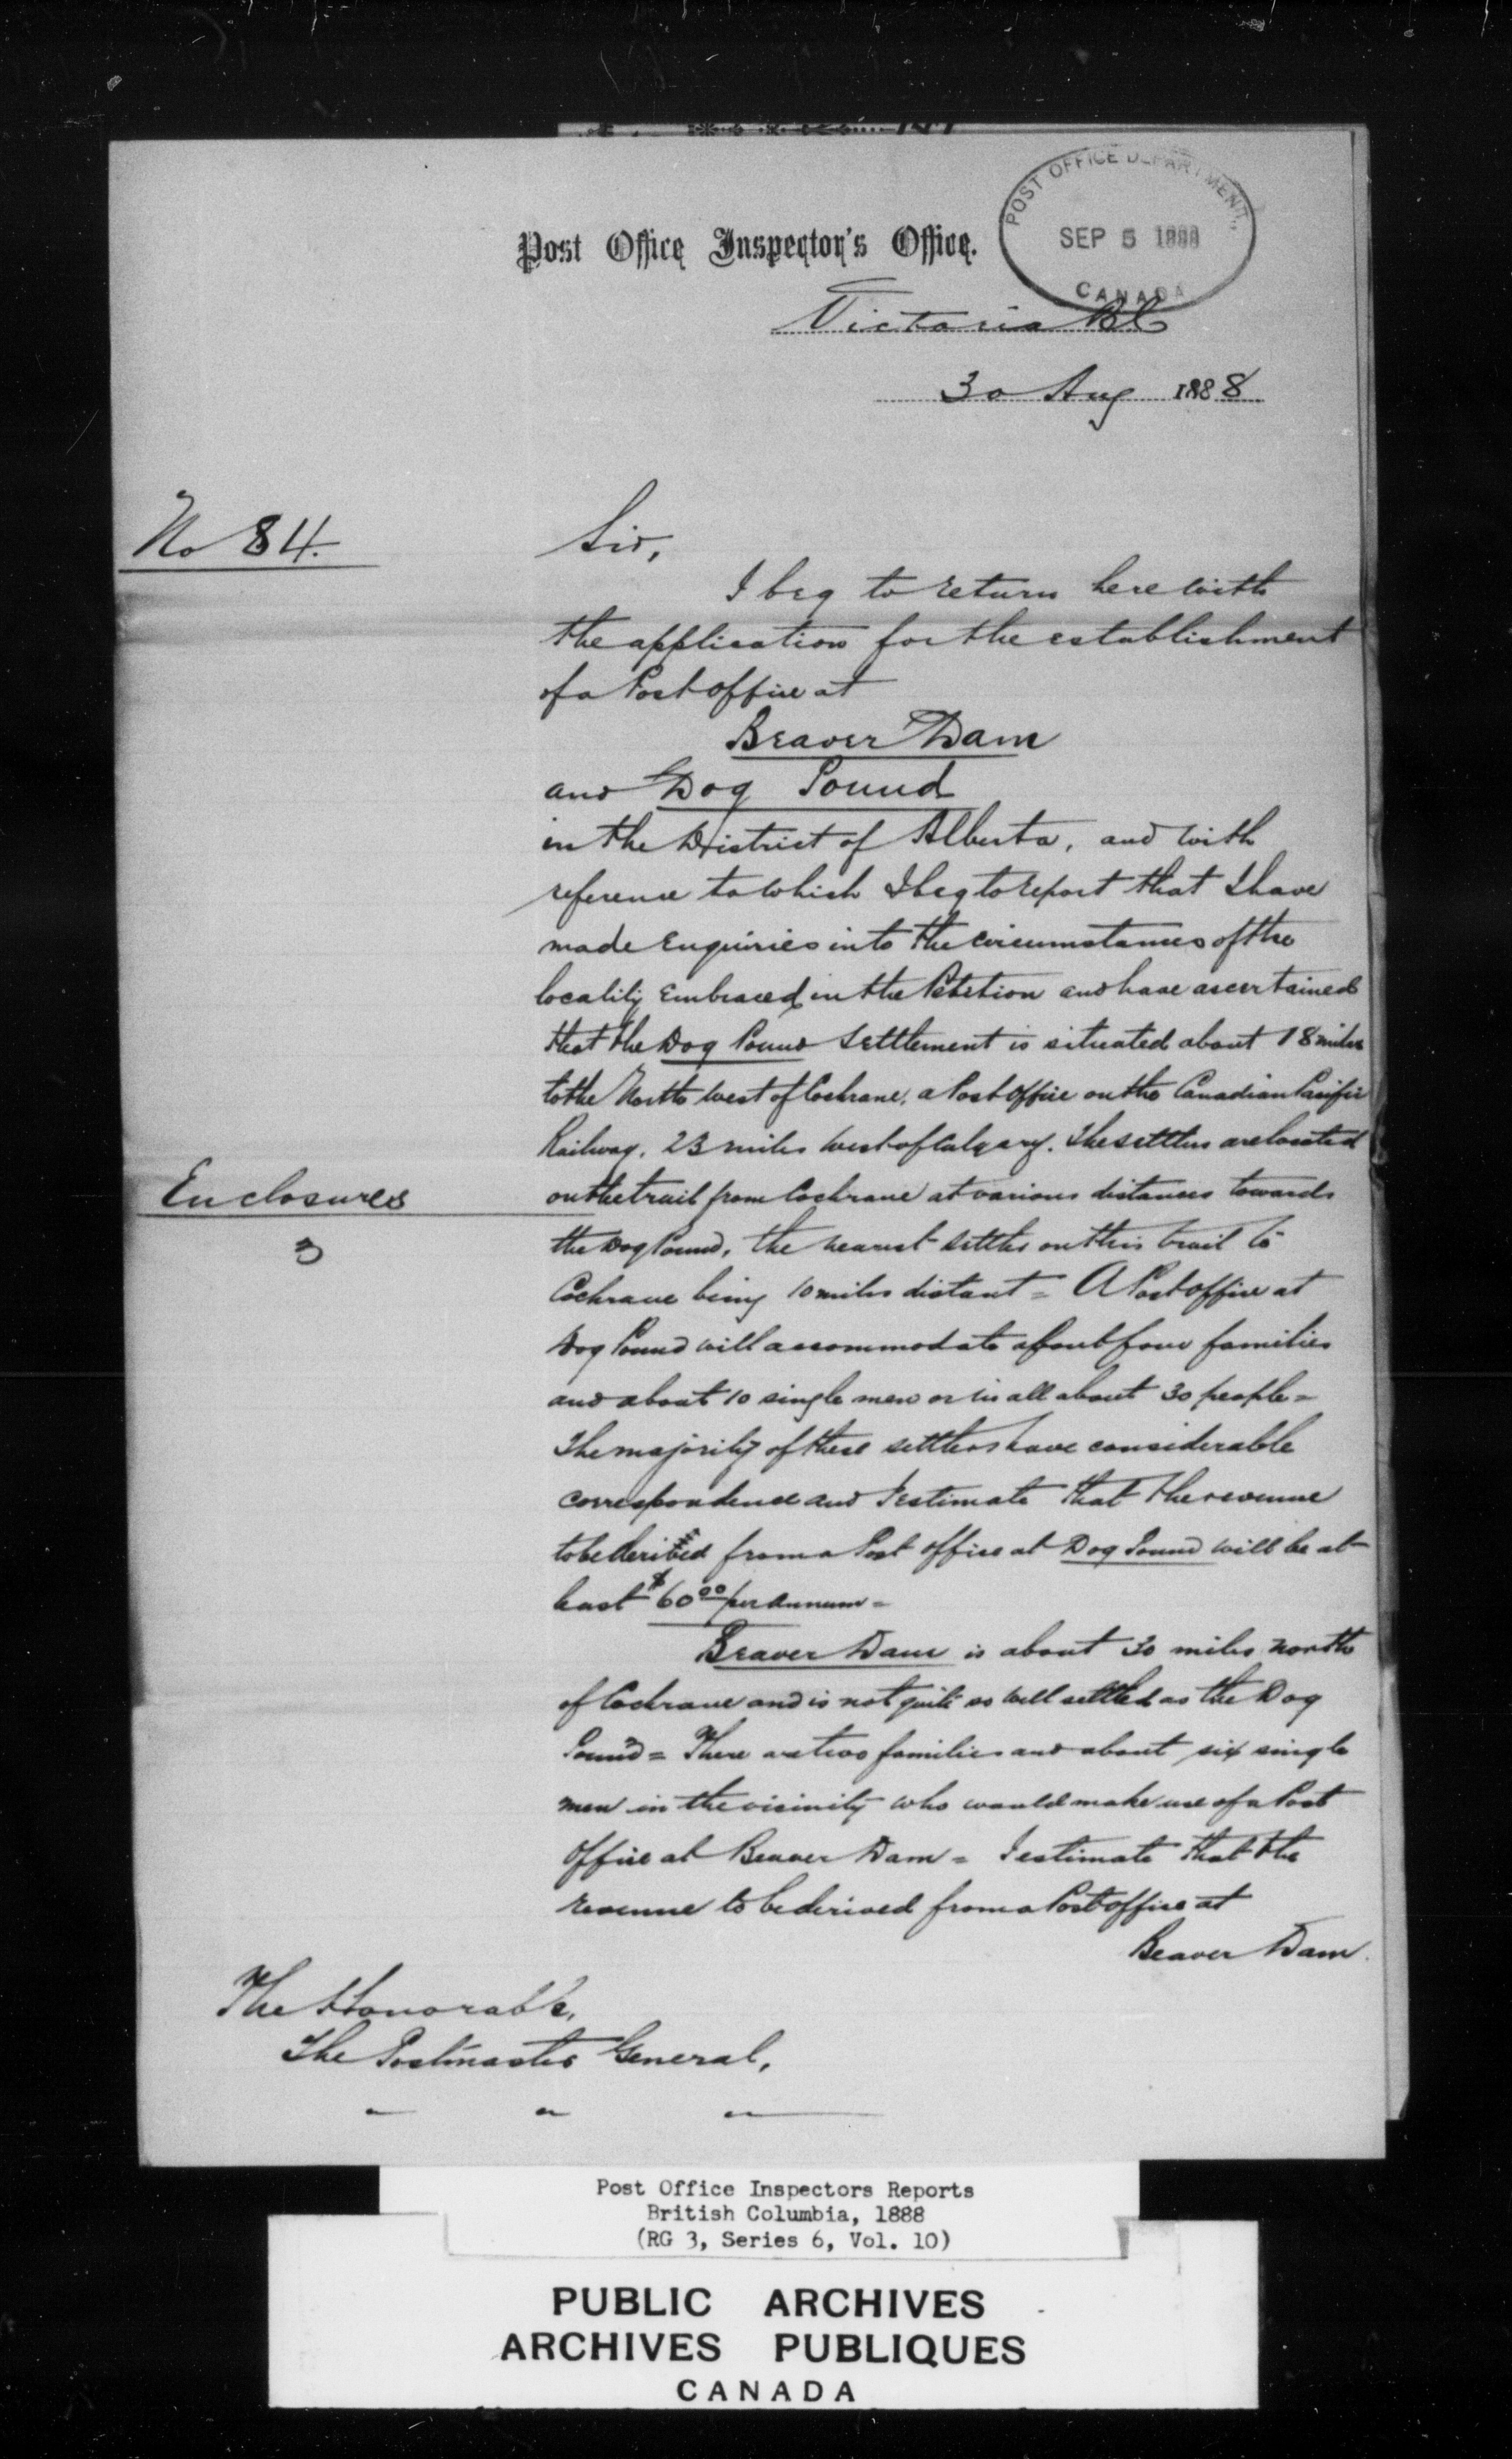 POST OFFICE DEPARTMENT,
SEP 5 1888
CANADA
Post Office Inspector's Office.
Victoria BC
30 Aug 1888
No 84.
Sir,
I beg to return herewith
the application for the establishment
of a Post office at
Beaver Dam
and Dog Pound
in the District of Alberta, and with
reference to which I beg to report that I have
made Enquiries into the circumstances of the
locality Embraced in the Petition and have ascertained
that the Dog Pound Settlement is situated about 18 miles
to the North West of Cochrane, a Post Office on the Canadian Pacific
Railway, 23 miles West of Calgary. The settlers are located
Enclosures
3
on the trail from Cochrane at various distances towards
the Dog Pound, the nearest settler on this trail to
Cochrane being 10 miles distant = A Post office at
Dog Pound will accommodate about four families
and about 10 single men or in all about 30 people =
The majority of these settlers have considerable
correspondence and I estimate that the revenue
to be derived from a Post Office at Dog Pound will be at
least $60.00 per annum =
Beaver Dam is about 30 miles North
of Cochrane and is not quite so well settled as the Dog
Pound = There are two families and about six single
men in the vicinity who would make use of a Post
Office at Beaver Dam = I estimate that the
revenue to be derived from a Post office at
Beaver Dam
The Honorable,
The Postmaster General,
Post Office Inspectors Reports
British Columbia, 1888
(RG 3, Series 6, Vol. 10)
PUBLIC ARCHIVES
ARCHIVES PUBLIQUES
CANADA